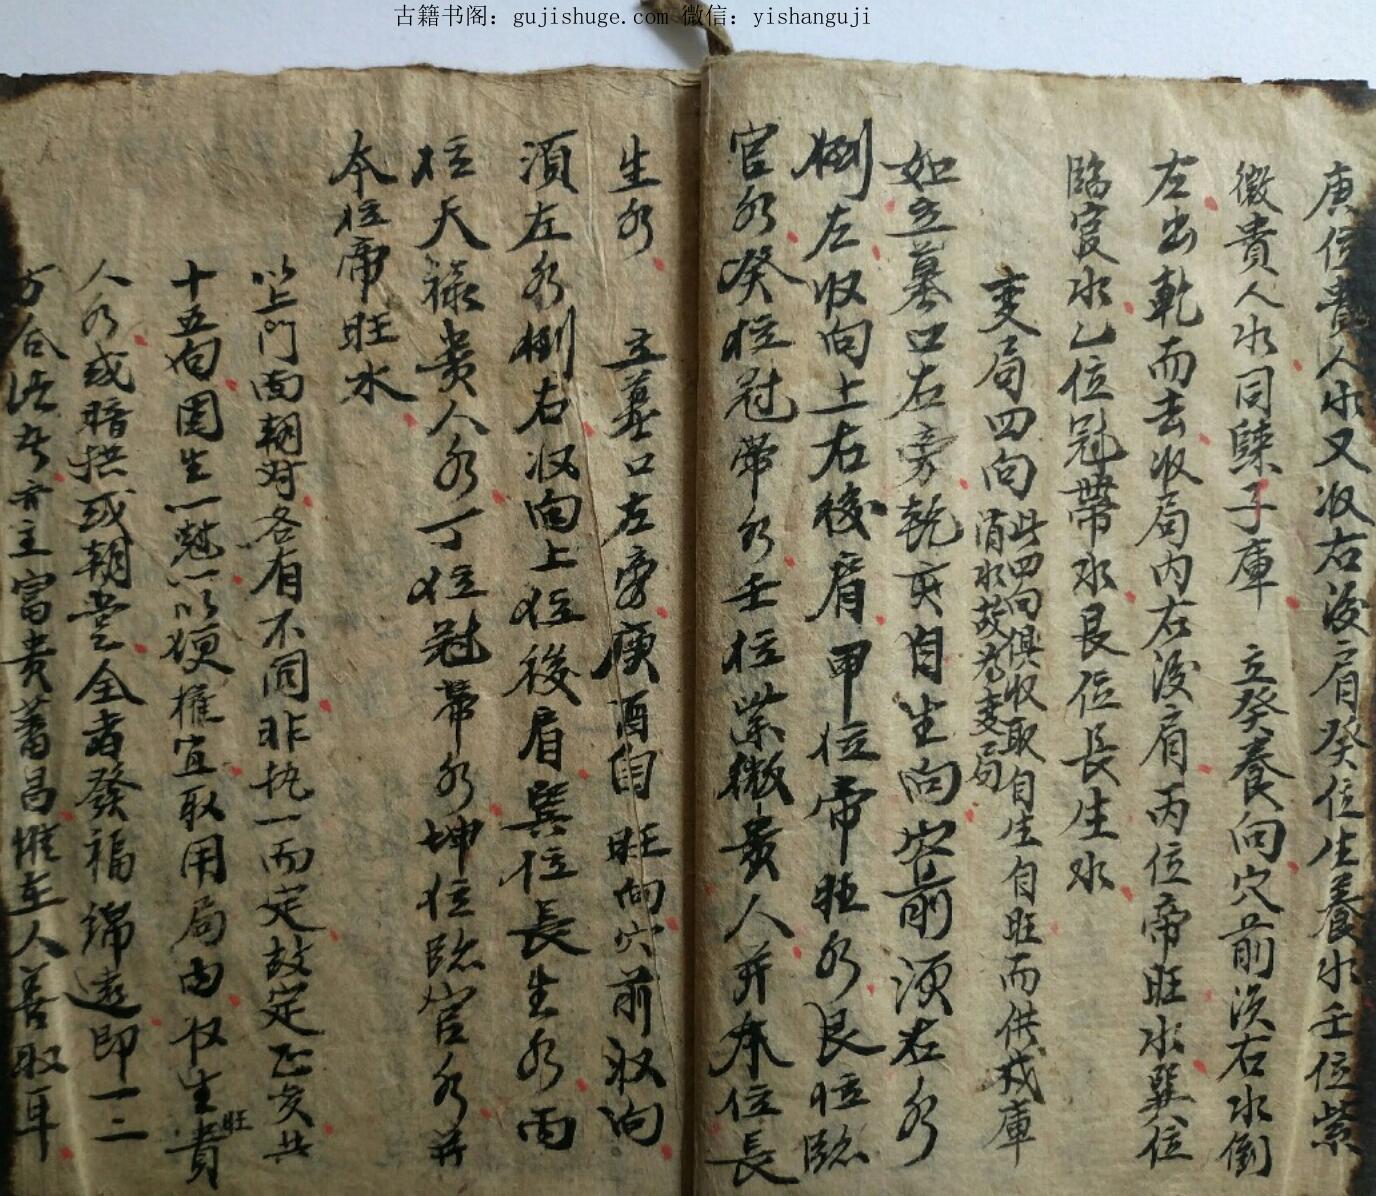 古籍书阁：gujishuge.com 微信：yishanguji
庚位貴人水又収右後肩癸位生養水壬位紫
微貴人水同歸子庫　立癸養向穴前須右水倒
左出乾而去収局內右後肩丙位帝旺水巽位
臨官水乙位冠帶水艮位長生水
变局四向此四向俱収取自生自旺而供戎庫
消水故為变局
如立墓口右旁乾亥自生向穴前須右水
倒左収向上右後肩甲位帝旺水艮位臨
官水癸位冠帶水壬位紫微貴人并本位長
生水　立墓口左旁庚酉自旺向穴前収向
須左水倒右収向上位後肩巽位長生水丙
位天祿貴人水丁位冠帶水坤位臨官水并
本位帝旺水
以上門面朝對各有不同非执一而定故定正变共
十五向圖生一以便權宜取用局內収生旺貴
人水或暗拱或朝堂全者發福綿遠即一二
方合亦主富貴蕃昌惟在人善取耳